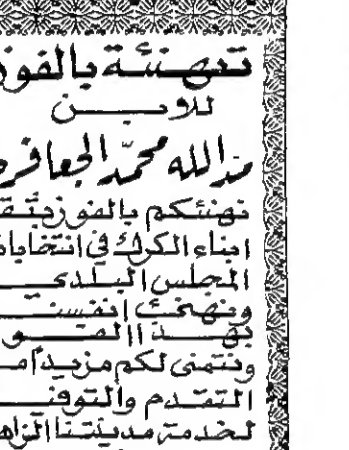 تهنئة بالفوز
للابن
عبدالله محمد الجعافره
نهنئكم بالفوز بثقة
ابناء الكرك في انتخابات
المجلس البلدي
ونهنئ انفسنا
بهذا الفوز
ونتمنى لكم مزيداً من
التقدم والتوفيق
لخدمة مدينتنا الزاهرة